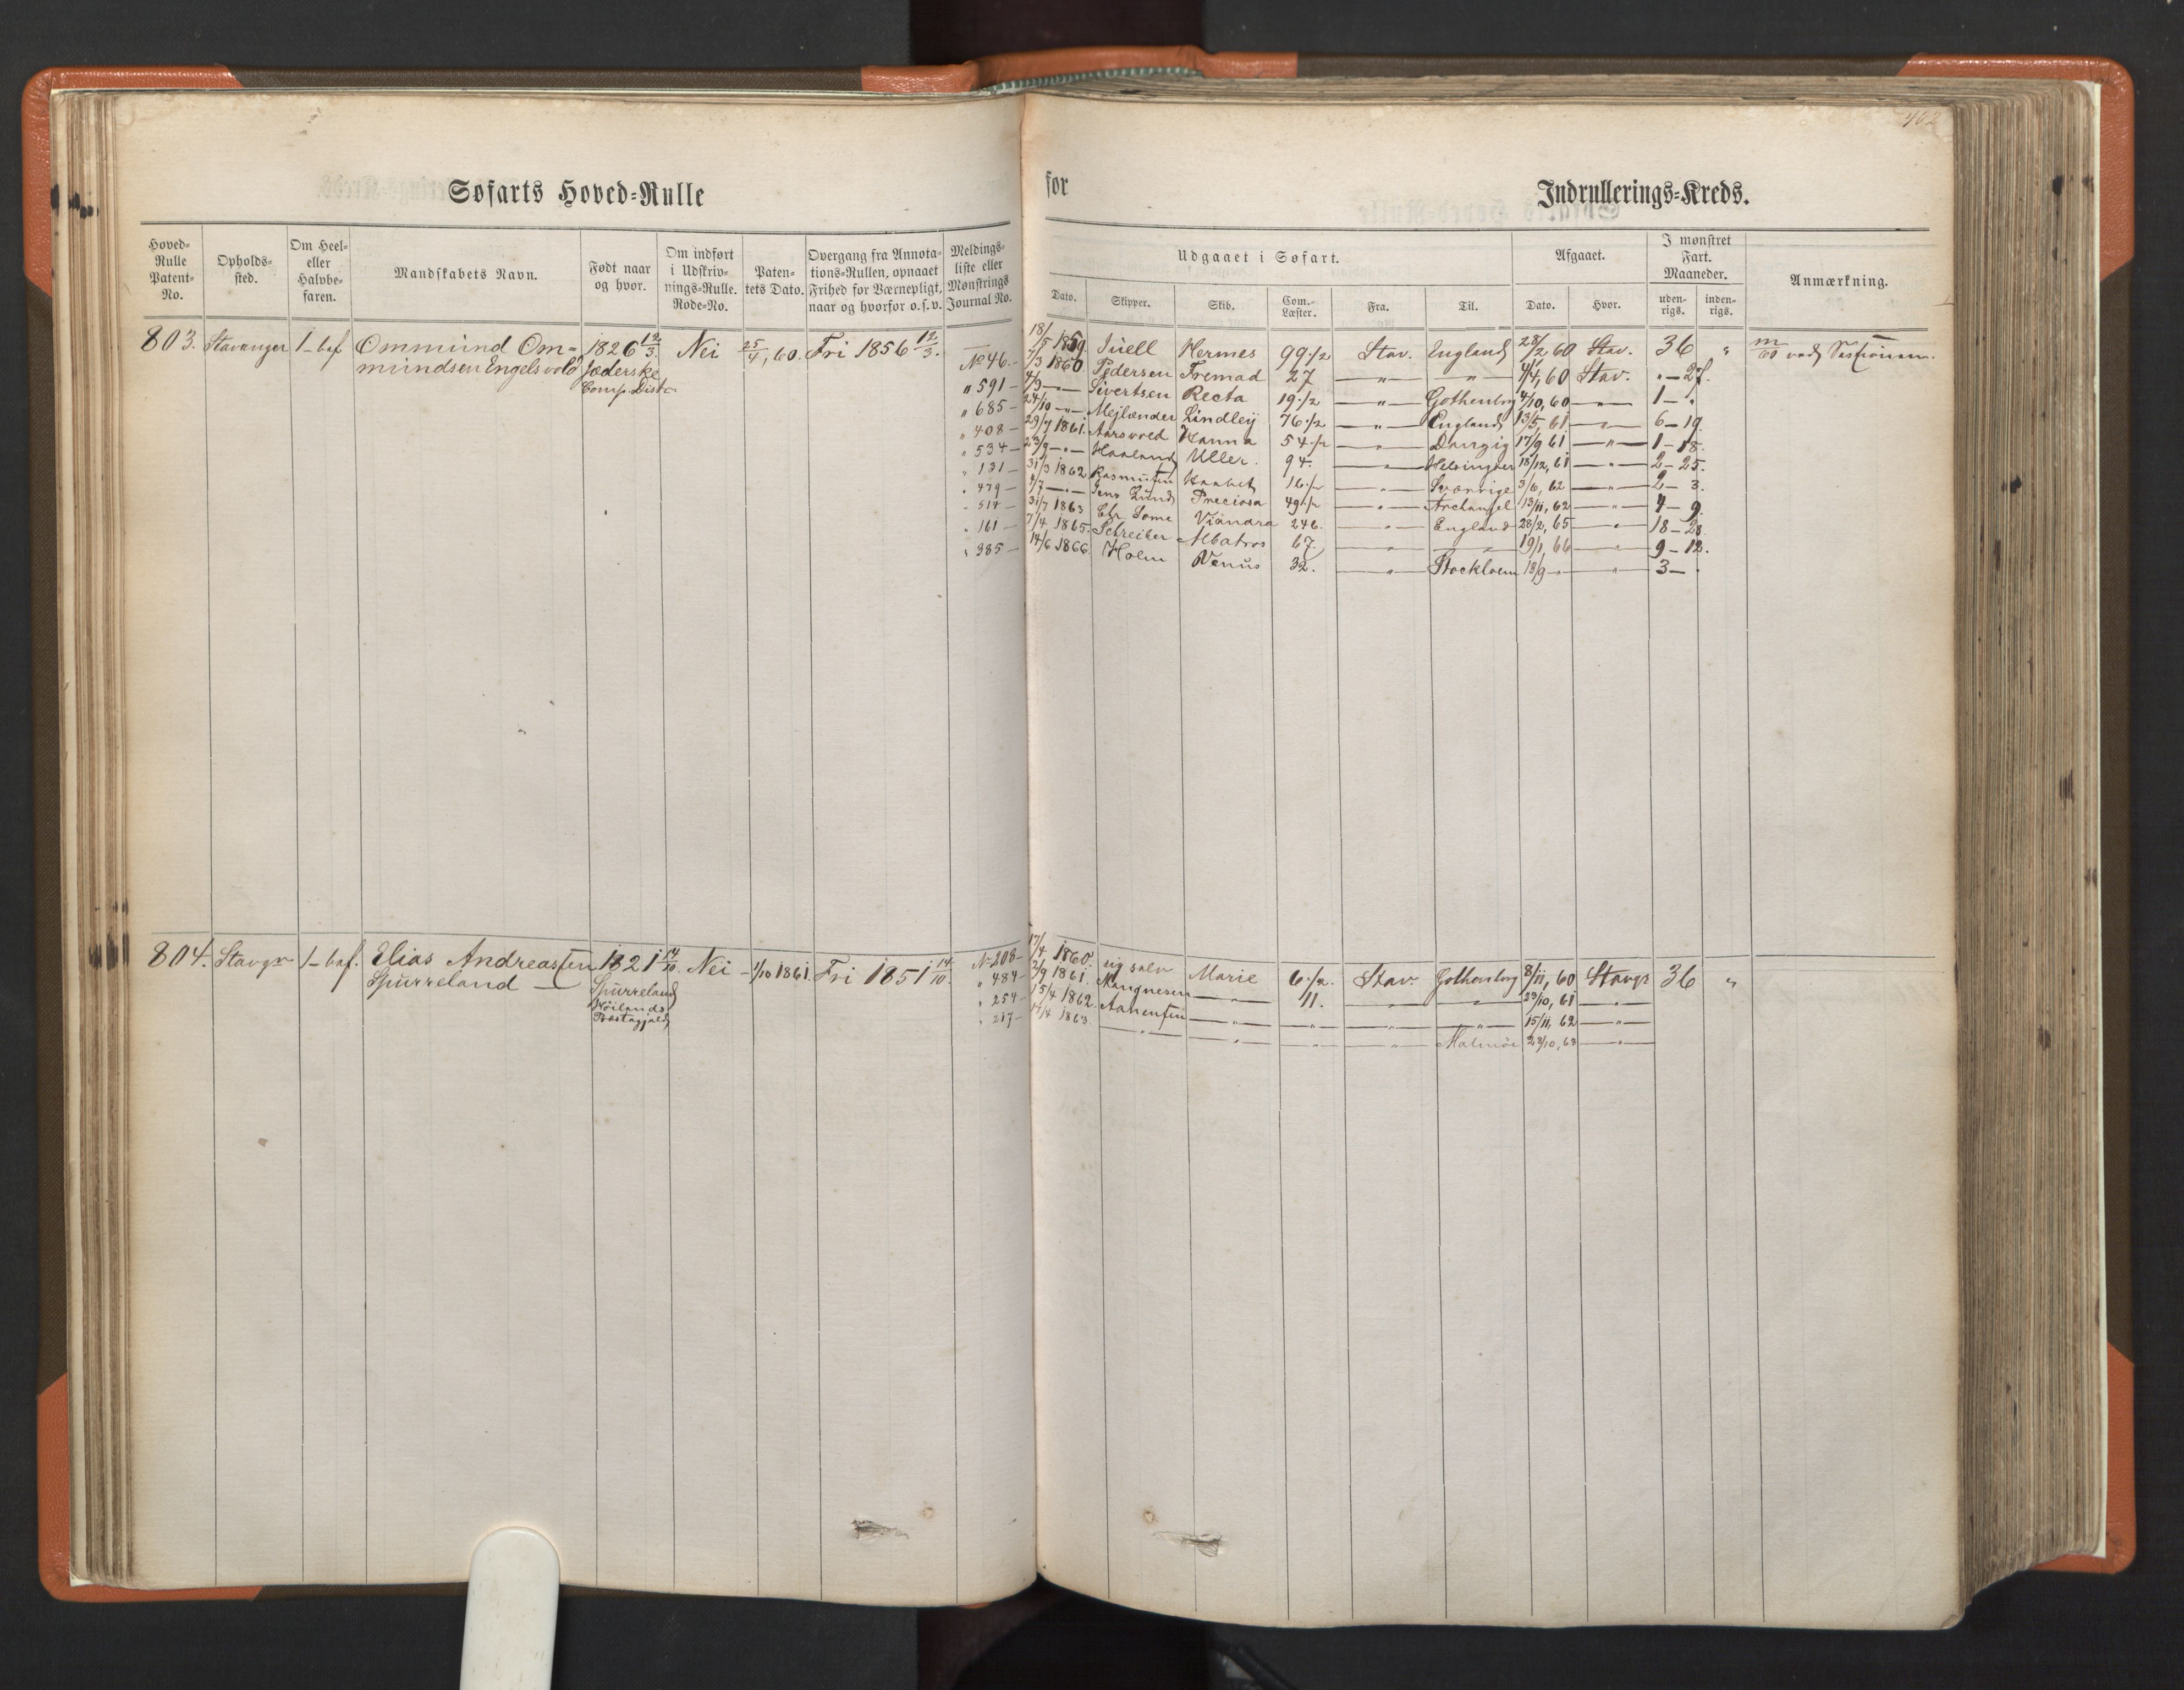 402
Søfarts Hoved=Rulle
for
Indrullerings=Kreds.
Hoved=Rulle Patent=No.
Opholds=sted.
Om Heel= eller Halvbe=faren.
Mandskabets Navn.
Født naar og hvor.
Om indført i Udskriv=nings=Rulle. Rode=No.
Paten=tets Dato.
Overgang fra Annota=tions=Rullen, opnaaet Frihed for Værnepligt, naar og hvorfor o.s.v.
Meldings=liste eller Mønstrings Journal No.
Udgaaet i Søfart.
Dato. Skipper. Skib. Com.=Læster. Fra. Til.
Afgaaet.
Dato. Hvor.
I mønstret Fart. Maaneder.
uden=rigs. inden=rigs.
Anmærkning.
803. Stavanger 1-bef Ommund Om= 1826 12/3. Nei 25/4, 60. Fri 1856 12/3.
mundsen Engelsvold Jæderske
Comp. Distr
18/5 1859. Juell Hermes 99 1/2 Stav. England 28/2 60 Stav. 36 "
No 46 - 7/3 1860 Pedersen Fremad 27 — " — — " — 4/4, 60 Stav. " - 27.
" 591 - Sivertsen Recta 19 1/2 — " — Gothenborg 4/10, 60 — " — 1 - "
" 685 - 24/10 — " — Mejlænder Lindley 76 1/2 — " — England 13/5, 61 — " — 6 - 19.
" 408 - 29/7 1861. Aarsvold Hanna 54 1/2 — " — Danzig 17/9 61 — " — 1 - 18.
" 534 - 23/9 — " — Haaland Uller. 94. — " — Helsingøer 18/12, 61 — " — 2 - 25.
" 131 - 31/3 1862 Rasmussen Haabet 16 1/2 — " — Sverrige 3/6, 62 — " — 2 - 3.
" 479 - — " — Jens Lund Preciosa 49 1/2 — " — Archangel 13/11, 62 — " — 4 - 9.
" 517 - 31/7 1863 Chr. Some Viandra 246. — " — England 28/2, 65 — " — 18 - 28
" 161 - 7/4 1865. Schreiber Albatros 67. — " — — " — 19/1, 66 — " — 9 - 12.
" 385 - 14/6 1866. Holm Venus 32. — " — Stockholm 13/9 — " — 3 -
804. Stavgr 1-bef. Elias Andreassen 1821 14/10. Nei - 1/10 1861. Fri 1851 14/10.
Spurreland — Spurreland
Höilands
Præstegjeld
No 208 - 17/4 1860. sig selv Marie 6 1/2. Stav. Gothenborg 8/11, 60 Stavgr 36 "
" 484 - 3/9 1861. Mangnesen — " — 11. — " — — " — 23/10, 61 — " —
" 254 - 15/4 1862. Aanensen — " — — " — — " — — " — 15/11, 62 — " —
" 217 - 14/4 1863. — " — — " — — " — — " — Malmöe 23/10, 63 — " —